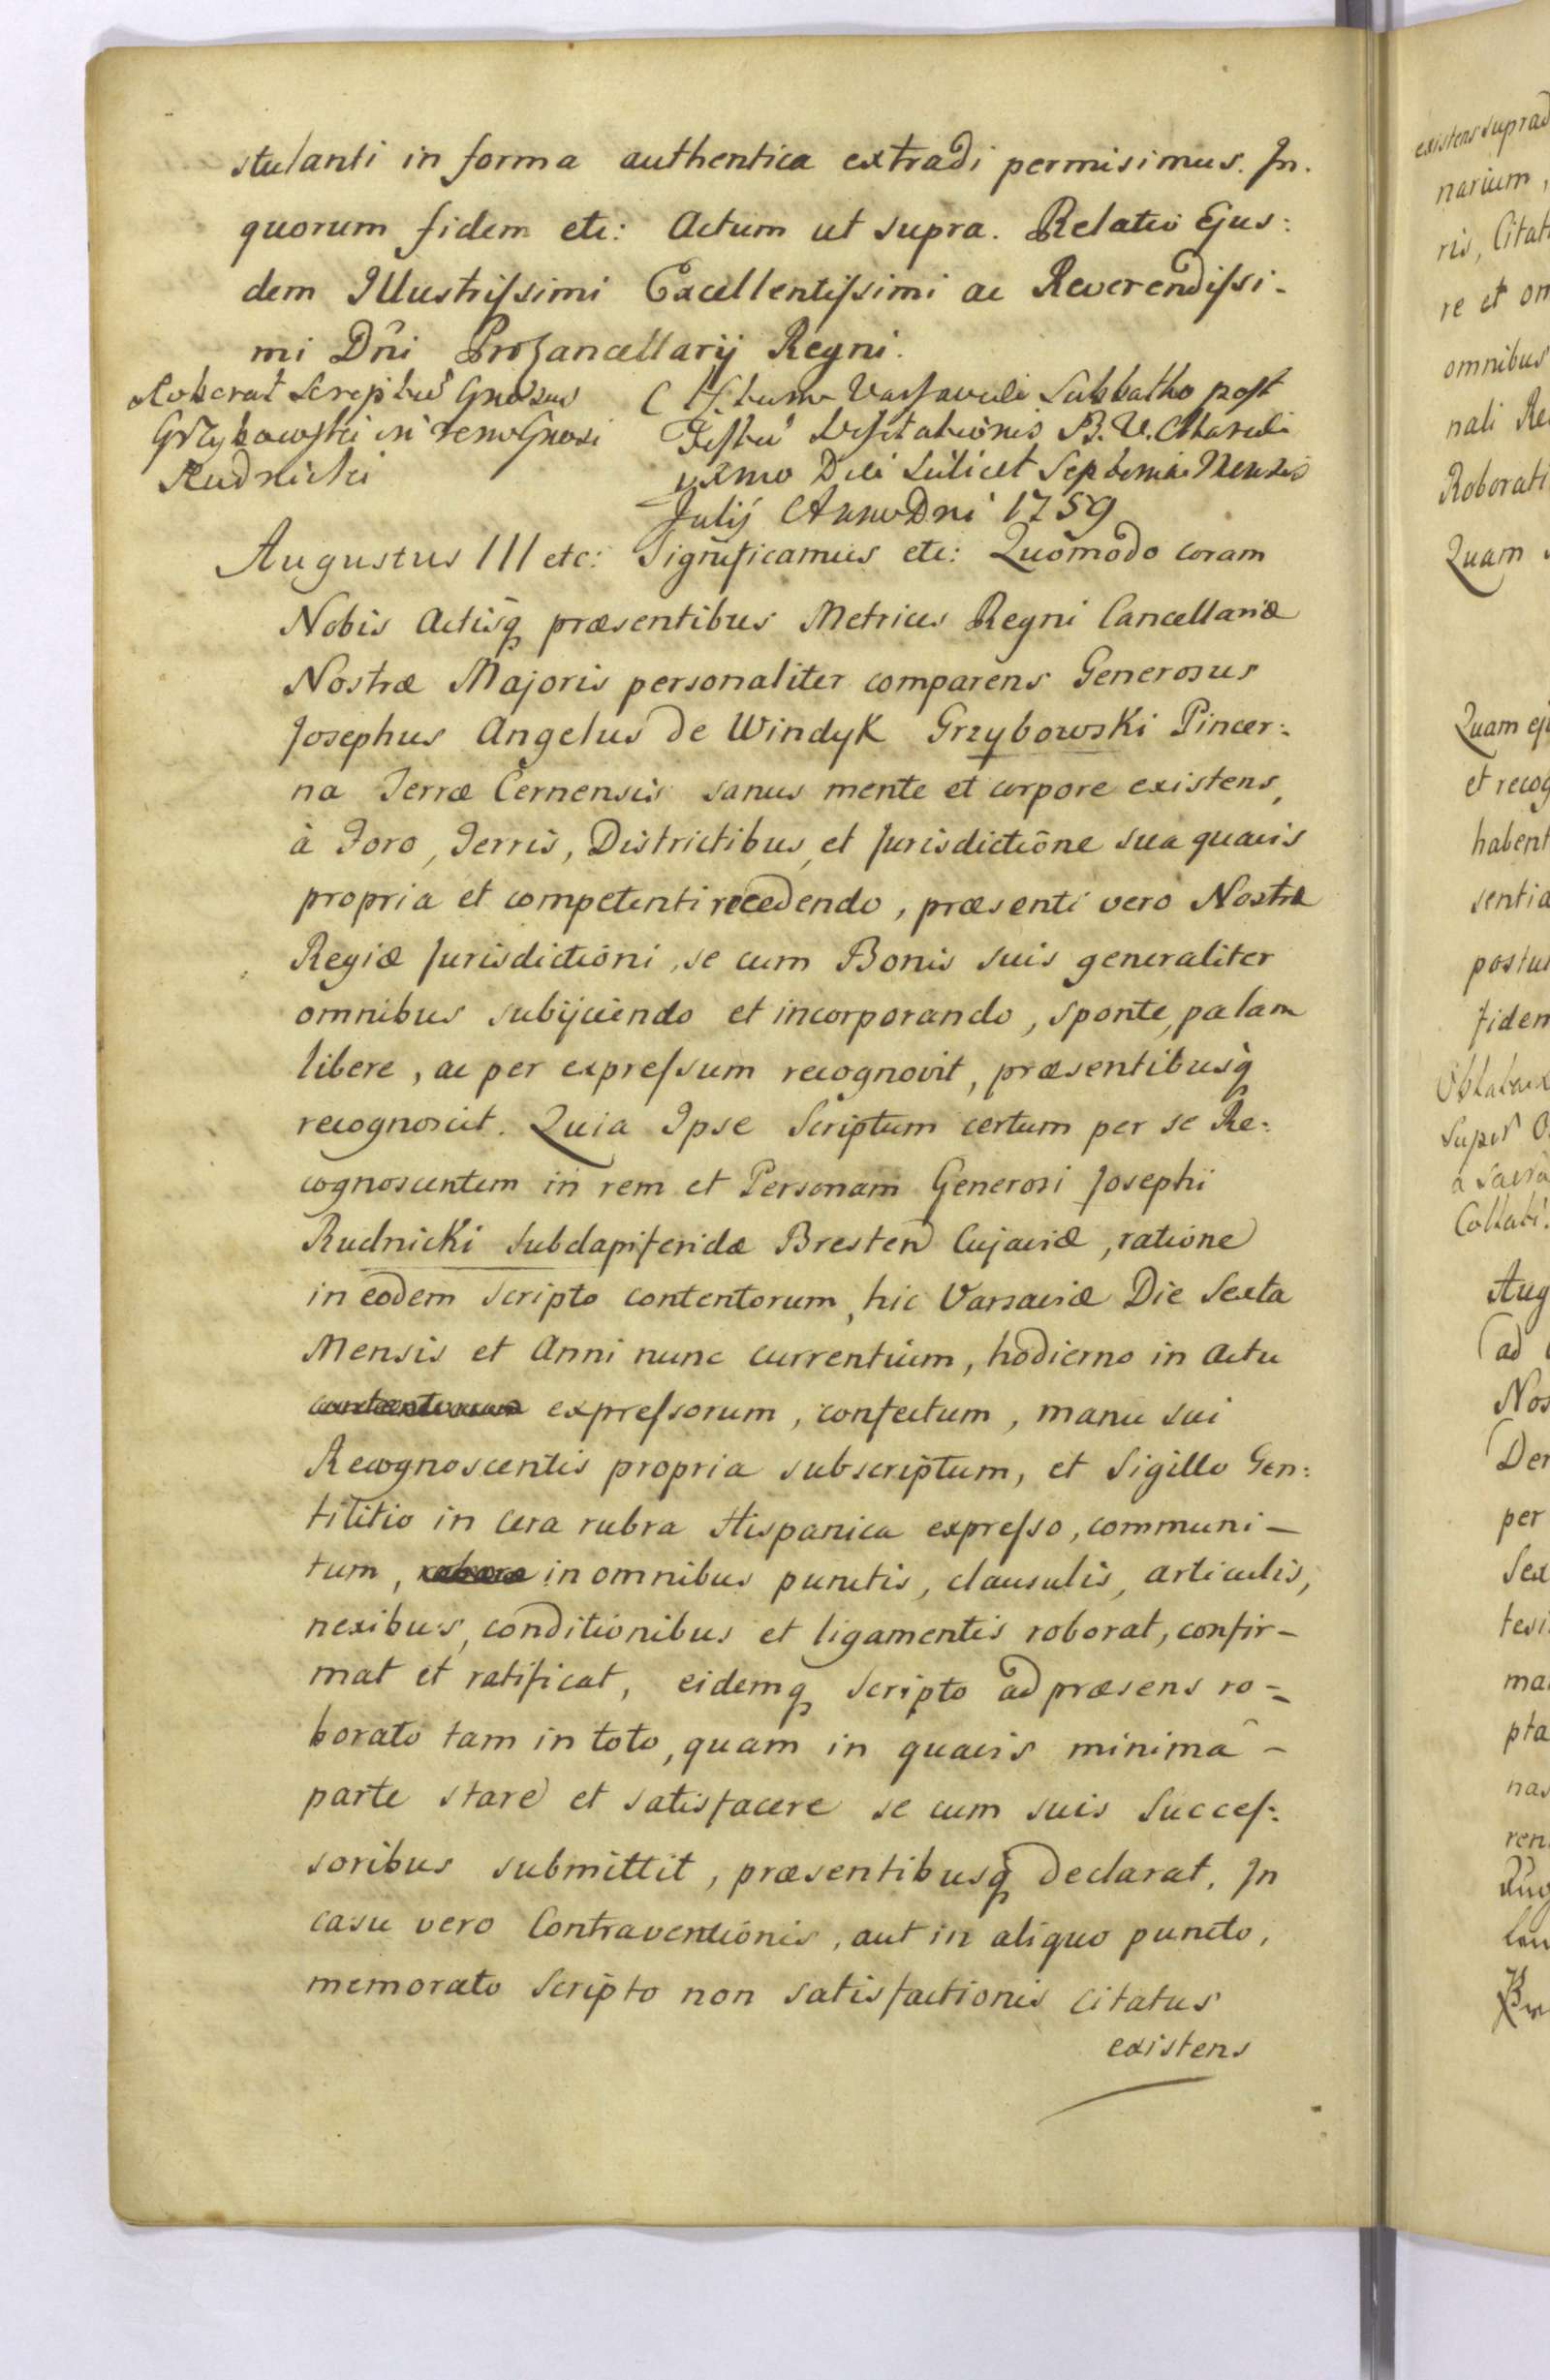 stulanti in forma authentica extradi permisimus. In.
quorum fidem etc: Actum ut supra. Relatio Ejus:
dem Illustrissimi Excellentissimi ac Reverendissi-
mi Dñi Procancellarij Regni.
Roborat Scriptu Gnosus
Grzybowski in rem Gnosi
Rudnicki
Actum Varsaviæ Sabbatho post
Festu Visitationis B. V. Mariæ
pximo Die scilicet Septima Mensis
Julij Anno Dni 1759
Augustus III etc: Significamus etc: Quomodo coram
Nobis Actisq præsentibus Metrices Regni Cancellariæ
Nostræ Majoris personaliter comparens Generosus
Josephus Angelus de Windyk Grzybowski Pincer:
na Terræ Cernensis sanus mente et corpore existens,
à Foro, Terris, Districtibus, et Jurisdictione sua quavis
propria et competenti recedendo, præsenti vero Nostræ
Regiæ Jurisdictioni, se cum Bonis suis generaliter
omnibus subijciendo et incorporando, sponte, palam
libere, ac per expressum recognovit, præsentibusq
recognoscit. Quia Ipse Scriptum certum per se Re:
cognoscentem in rem et Personam Generosi Josephi
Rudnicki Subdapiferidæ Bresten Cujaviæ, ratione
in eodem scripto contentorum, hic Varsaviæ Die Sexta
Mensis et Anni nunc currentium, hodierno in actu
expressorum, confectum, manu sui
Recognoscentis propria subscriptum, et Sigillo Gen:
tilitio in cera rubra Hispanica expresso, communi-
tum, in omnibus punctis, clausulis, articulis,
nexibus, conditionibus et ligamentis roborat, confir-
mat et ratificat, eidemq scripto ad præsens ro=
borato tam in toto, quam in quavis minimâ -
parte stare et satisfacere se cum suis Succes:
soribus submittit, præsentibusq declarat. In
casu vero Contraventionis, aut in aliquo puncto,
memorato Scripto non satisfactionis citatus
existens
existens suprad
narium,
ris, Citat
re et om
omnibus
nali Re
Roborati
Quam
Quam ej
et recog
habent
sentia
postul
fidem
Super
Aug
ad
Nos
per
Sex
ma
pta
nas
ren